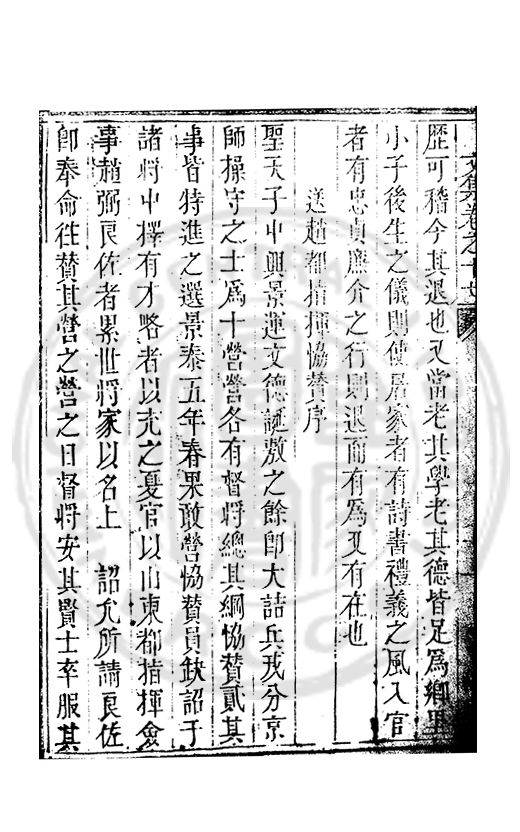 文集卷之十
歷可稽今其退也又當老其學老其德皆足爲鄉里
小子後生之儀則使居家者有詩書禮義之風入官
者有忠貞廉介之行則退而有爲又有在也
送趙都指揮恊賛序
聖天子中興景運文德誕敷之餘即大詰兵戎分京
師操守之士爲十營營各有督將總其綱恊賛貳其
事皆特進之選景泰五年春果敢營恊賛員缺詔于
諸將中擇有才略者以充之夏官以山東都指揮僉
事趙弼良佐者累世將家以名上 詔允所請良佐
即奉命徃賛其營之營之日督將安其賢士卒服其